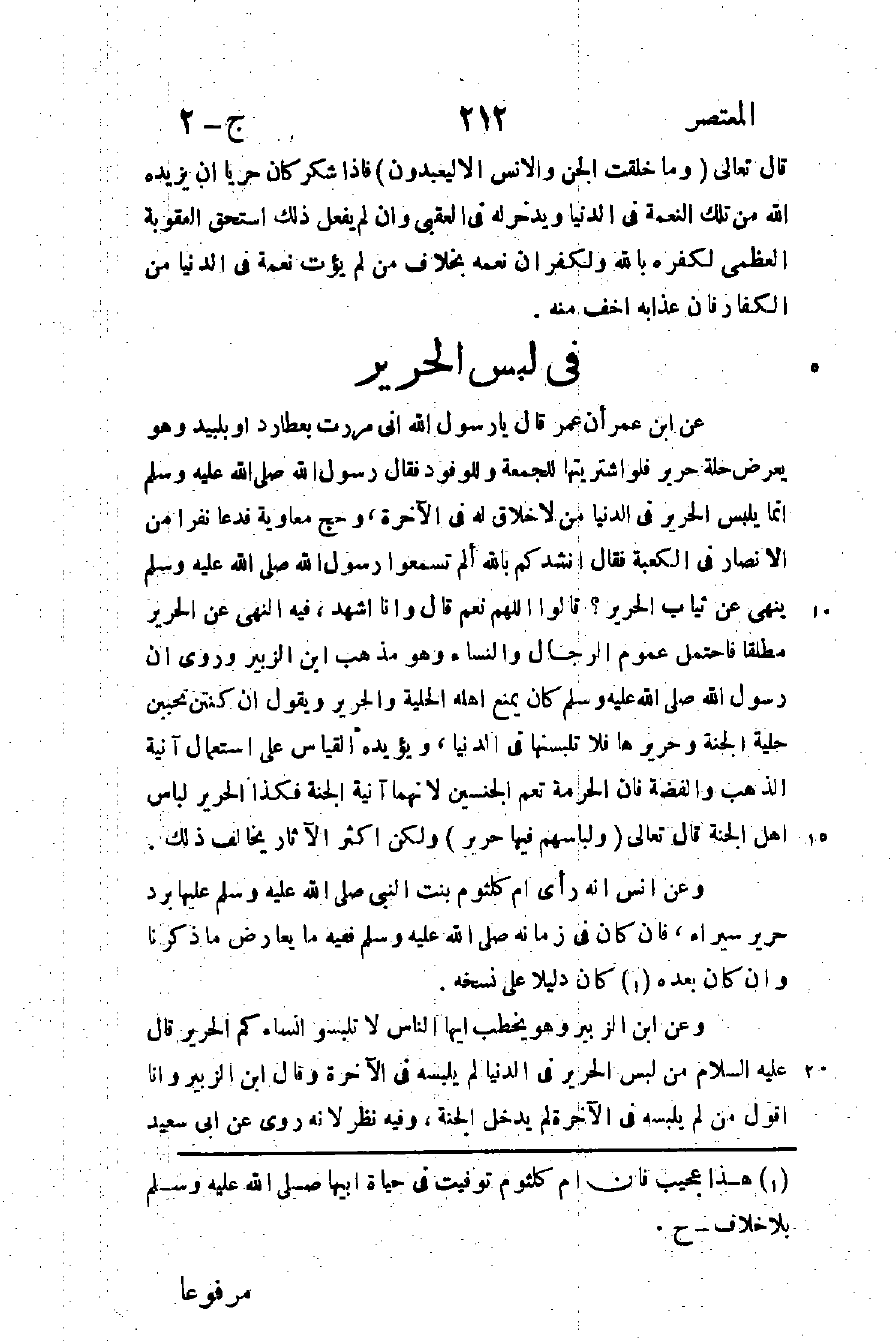 المعتصر ٢١٢ ج – ٢
قال تعالى ( وما خلقت الجن والانس الا ليعبدون ) فاذا شكر كان حريا ان يزيده
الله من تلك النعمة فى الدنيا ويدخر له فى العقبى وان لم يفعل ذلك استحق العقوبة
العظمى لكفره بالله ولكفران نعمه بخلاف من لم يؤت نعمة فى الدنيا من
الكفار فان عذابه اخف منه .
فى لبس الحرير ٥
عن ابن عمر أن عمر قال يارسول الله انى مررت بعطارد او بلبيد وهو
يعرض حلة حرير فلو اشتريتها للجمعة وللوفود فقال رسول الله صلى الله عليه وسلم
انما يلبس الحرير فى الدنيا من لاخلاق له فى الآخرة ، وحج معاوية فدعا نفرا من
الانصار فى الكعبة فقال انشدكم بالله ألم تسمعوا رسول الله صلى الله عليه وسلم
ينهى عن ثياب الحرير ؟ قالوا اللهم نعم قال وانا اشهد ، فيه النهى عن الحرير ١٠
مطلقا فاحتمل عموم الرجال والنساء وهو مذهب ابن الزبير وروى ان
رسول الله صلى الله عليه وسلم كان يمنع اهله الحلية والحرير ويقول ان كنتن تحببن
حلية الجنة وحريرها فلا تلبسنها فى الدنيا ، ويؤيده القياس على استعمال آنية
الذهب والفضة فان الحرمة تعم الجنسين لانهما آنية الجنة فكذا الحرير لباس
اهل الجنة قال تعالى ( ولباسهم فيها حرير ) ولكن اكثر الآثار يخالف ذلك . ١٥
وعن انس انه رأى ام كلثوم بنت النبي صلى الله عليه وسلم عليها برد
حرير سيراء ، فان كان فى زمانه صلى الله عليه وسلم ففيه ما يعارض ما ذكرنا
وان كان بعده (١) كان دليلا على نسخه .
وعن ابن الزبير وهو يخطب ايها الناس لا تلبسوا نساءكم الحرير قال
عليه السلام من لبس الحرير فى الدنيا لم يلبسه فى الآخرة وقال ابن الزبير وانا ٢٠
اقول من لم يلبسه فى الآخرة لم يدخل الجنة ، وفيه نظر لانه روى عن ابى سعيد
(١) هذا عجيب فان ام كلثوم توفيت فى حياة ابيها صلى الله عليه وسلم
بلا خلاف – ح .
مرفوعا